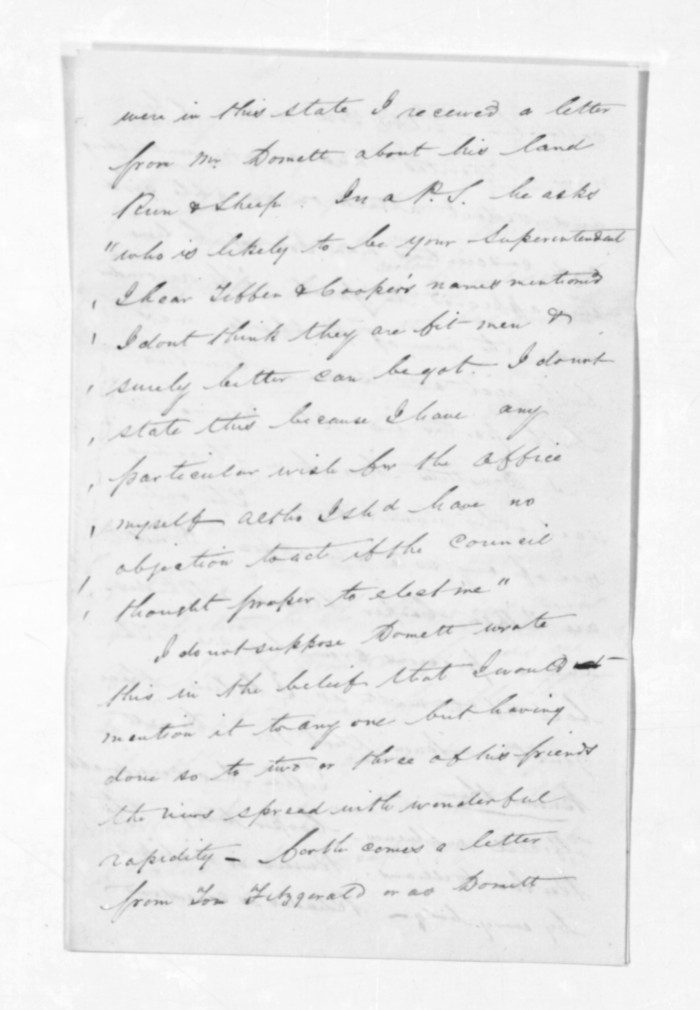 were in this state I received a letter
from Mr. Domett about his land
Run & Sheep. In a P.S. he asks
"who is likely to be your Superintendent
' I hear Tiffen & Cooper's names mentioned
' I dont think they are fit men &
' surely better can be got. I do not
' state this because I have any
' particular wish for the office
' myself altho I shd have no
' objection to act if the council
' thought proper to elect me"
I do not suppose Domett wrote
this in the belief that I would
mention it to any one but having
done so to two or three of his friends
the news spread with wonderful
rapidity – Forth comes a letter
from Tom Fitzgerald or as Domett